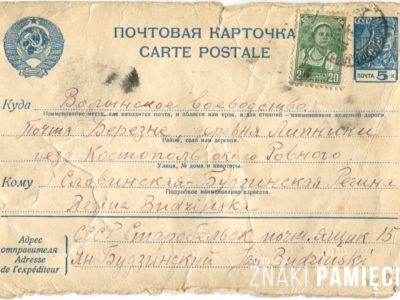 ПОЧТОВАЯ КАРТОЧКА
CARTE POSTALE
20 20
ПОЧТА 5 К
Куда Волынское воеводство
Наименование места, где находится почта, и области или края, а для станций — наименование железной дороги.
Почта Березне, деревня Липники
Район, село или деревня.
Костополь Ровного
Улица, № дома и квартиры.
Кому Славинская-Будзинская Регина
Подробное наименование адресата.
Regina Budzińska
Адрес отправителя
Adresse de l'expéditeur
СССР Старобельск почт. ящик 15
Ян Будзинский Jan Budziński
ZNAKI PAMIĘCI